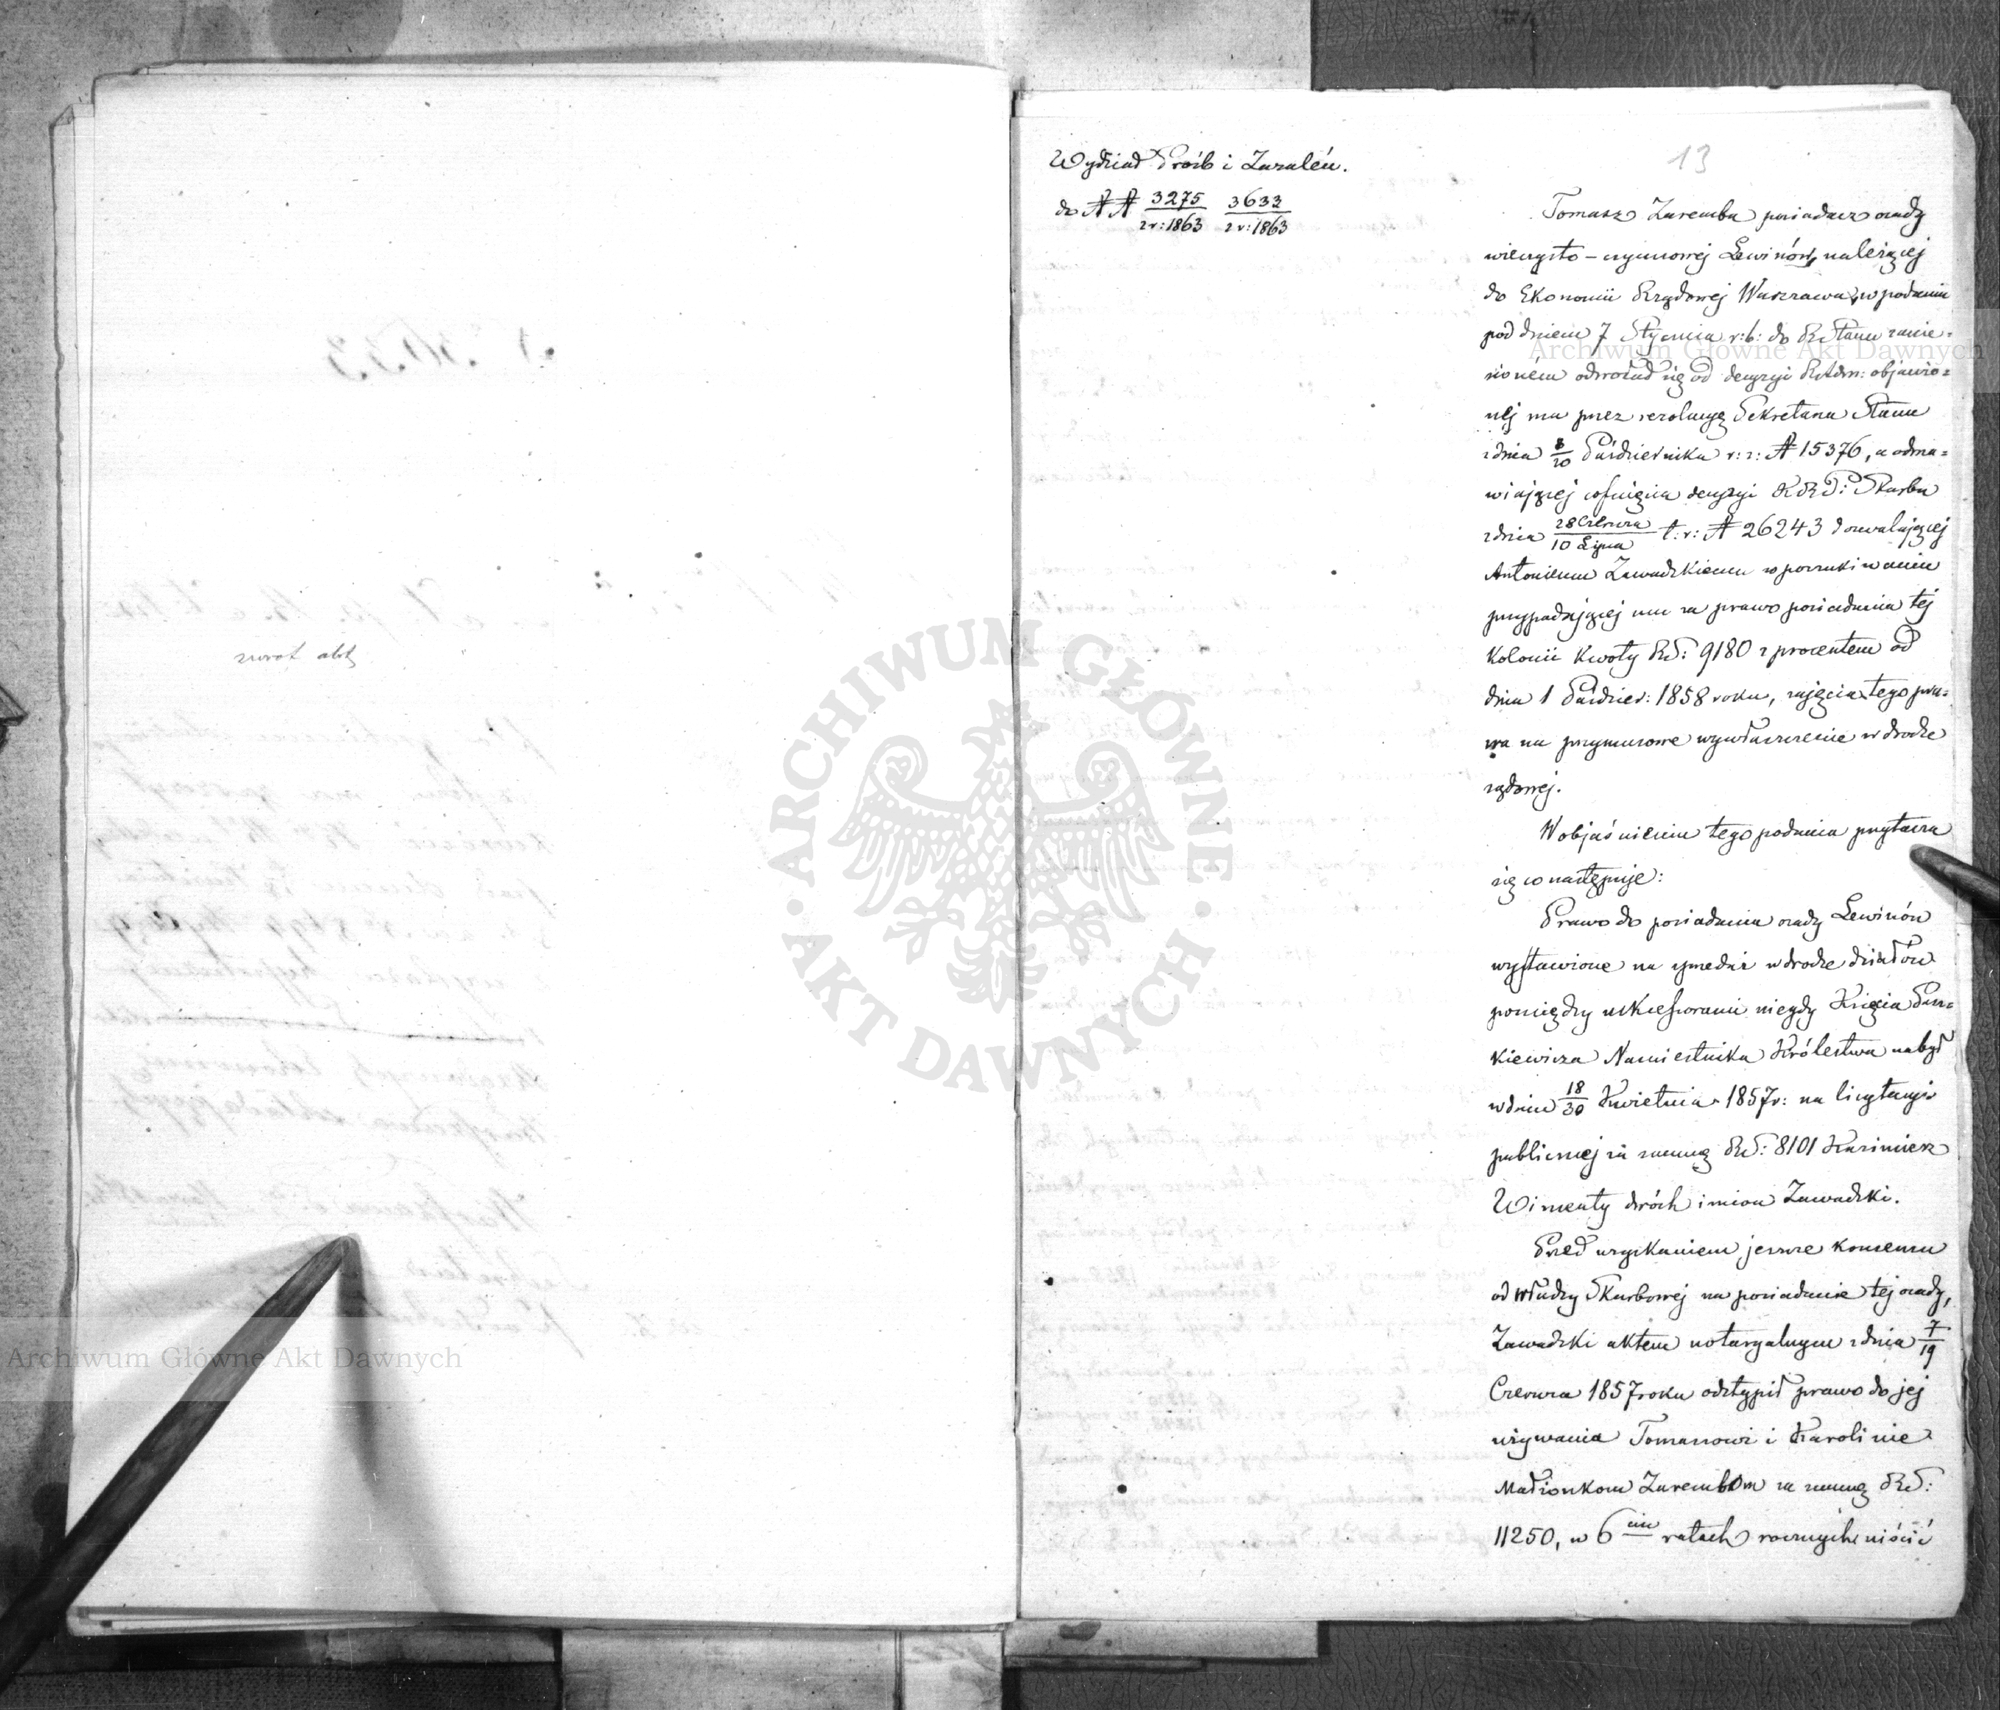 zwrot akt
Wydział Prośb i Zażaleń.
do NN 3275/z r: 1863 3633/z r: 1863
13
Tomasz Zaremba posiadacz osady
wieczysto-czynszowej Lewinów, należącej
do Ekonomii Rządowej Warszawa, w podaniu
pod dniem 7 Stycznia r: b: do R Stanu zanie-
sioném odwołał się od decyzyi R Adm: objawio-
nej mu przez rezolucyę Sekretarza Stanu
z dnia 8/20 Października r: z: N 15376, a odma-
wiającej cofnięcia decyzyi K R P: i Skarbu
z dnia 28 Czerwca/10 Lipca t: r: N 26243 dozwalającej
Antoniemu Zawadzkiemu w poszukiwaniu
przypadającej mu za prawo posiadania tej
Kolonii Kwoty Rs: 9180 z procentem od
dnia 1 Paździer: 1858 roku, zajęcia tego pra-
wa na przymusowe wywłaszczenie w drodze
sądowej.
W objaśnieniu tego podania przytacza
się co następuje:
Prawo do posiadania osady Lewinów
wystawione na sprzedaż w drodze działów
pomiędzy sukcessorami niegdy Księcia Pasz-
kiewicza Namiestnika Królestwa nabył
w dniu 18/30 Kwietnia 1857 r: na licytacyi
publicznej za summę Rs: 8101 Kazimierz
Wincenty dwóch imion Zawadzki.
Przed uzyskaniem jeszcze konsensu
od władzy Skarbowej na posiadanie tej osady,
Zawadzki aktem notaryalnym z dnia 7/19
Czerwca 1857 roku odstąpił prawo do jej
używania Tomaszowi i Karolinie
Małżonkom Zarembom za summę Rs:
11250, w 6ciu ratach rocznych uiścić
Archiwum Główne Akt Dawnych
Archiwum Główne Akt Dawnych
ARCHIWUM GŁÓWNE AKT DAWNYCH